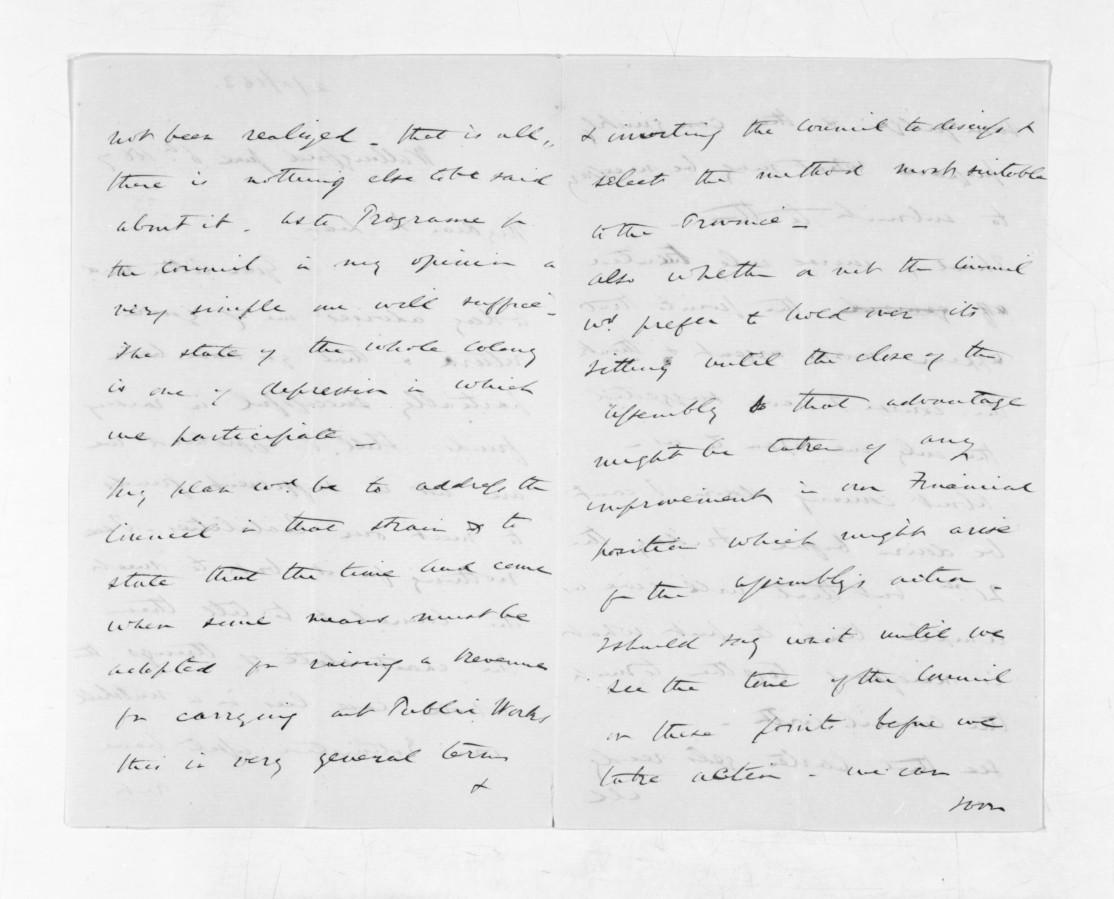 not been realized - that is all,,
there is nothing else to be said
about it. As to Programe for
the Council in my opinion a
very simple one will suffice -
The state of the whole colony
is one of depression in which
we participate -
My plan wd. be to address the
Council in that strain & to
state that the time had come
when some means must be
adopted for raising a Revenue
for carrying out Public Works
this in very general terms
&
& inviting the Council to discuss &
select the method most suitable
to the Province -
also whether or not the Council
wd. prefer to hold over its
sitting until the close of the
Assembly so that advantage
might be taken of any
improvement in our Financial
position which might arise
from the Assembly's action -
I should say wait until we
see the tone of the Council
on these points before we
take action - we can
soon